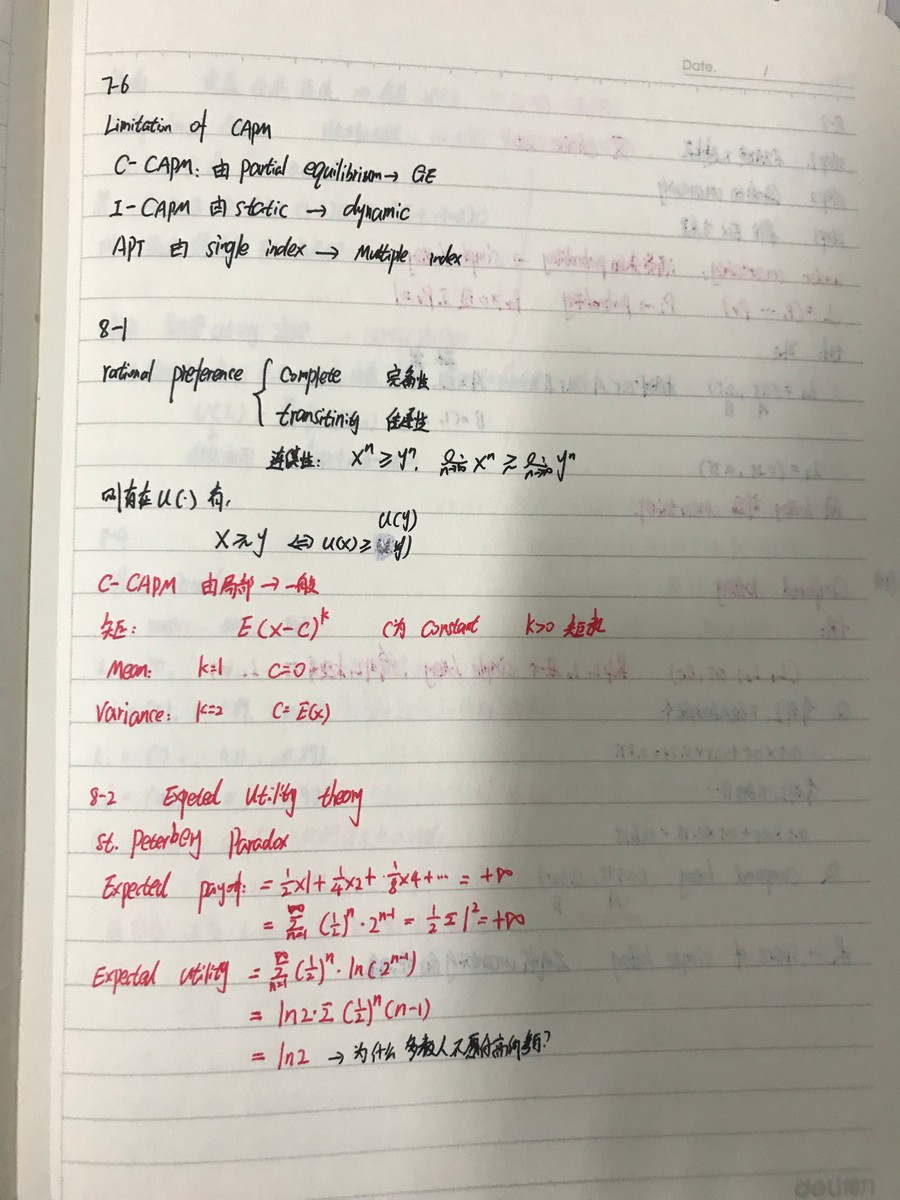 Date. /
7-6
Limitation of CAPM
C-CAPM: 由 partial equilibrium → GE
I-CAPM 由 static → dynamic
APT 由 single index → Multiple index
8-1
rational preference { Complete 完备性
transitinity 传递性
连续性: xⁿ ≥ yⁿ. lim n→∞ xⁿ ≳ lim n→∞ yⁿ
则存在 U(·) 有,
U(y)
X ≳ y ⇔ U(x) ≥ y)
C-CAPM 由局部 → 一般
矩: E(x-c)^k C为 Constant k>0 矩
Mean: k=1 C=0
Variance: k=2 C=E(x)
8-2 Expeted Utility theory
St. Peterbey Paradox
Expected payoff: = 1/2×1 + 1/4×2 + 1/8×4 + ··· = +∞
= ∑_{n=1}^{∞} (1/2)ⁿ · 2^{n-1} = 1/2 Σ 1² = +∞
Expected Utility = ∑_{n=1}^{∞} (1/2)ⁿ · ln(2^{n-1})
= ln2·Σ (1/2)ⁿ (n-1)
= ln2 → 为什么多数人不愿付高价
deli